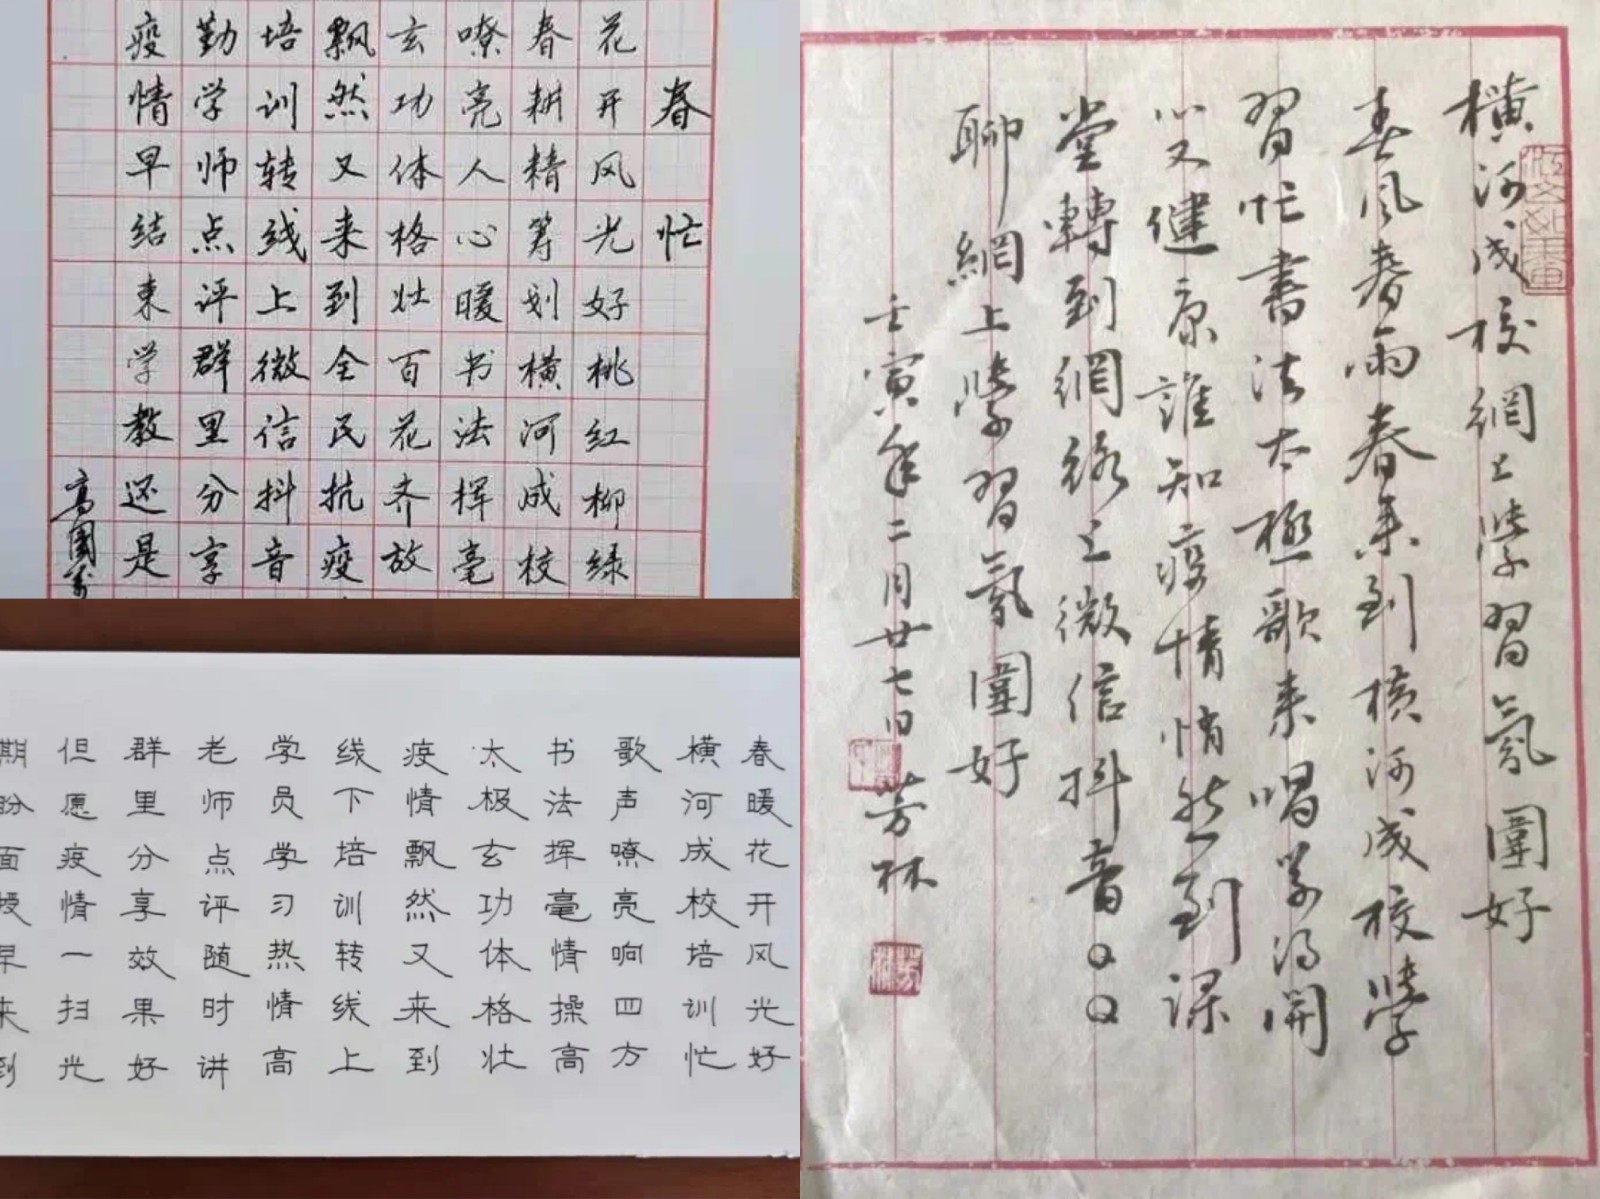 春忙
花开风光好桃红柳绿
春耕精筹划横河成校
嘹亮人心暖书法挥毫
玄功体格壮百花齐放
飘然又来到全民抗疫
培训转线上微信抖音
勤学师点评群里分享
疫情早结束学教还是
高國
春暖花开风光好
横河成校培训忙
歌声嘹亮响四方
书法挥毫情操高
太极玄功体格壮
疫情飘然又来到
线下培训转线上
学员学习热情高
老师点评随时讲
群里分享效果好
但愿疫情一扫光
期盼面授早来到
橫河成校網上學習氛圍好
春風春雨春来到横河成校學
習忙書法太極歌来唱学得開
心又健康誰知疫情悄然到課
堂轉到網络上微信抖音QQ
聊網上學習氛圍好
壬寅年二月廿七日芳林
芳林